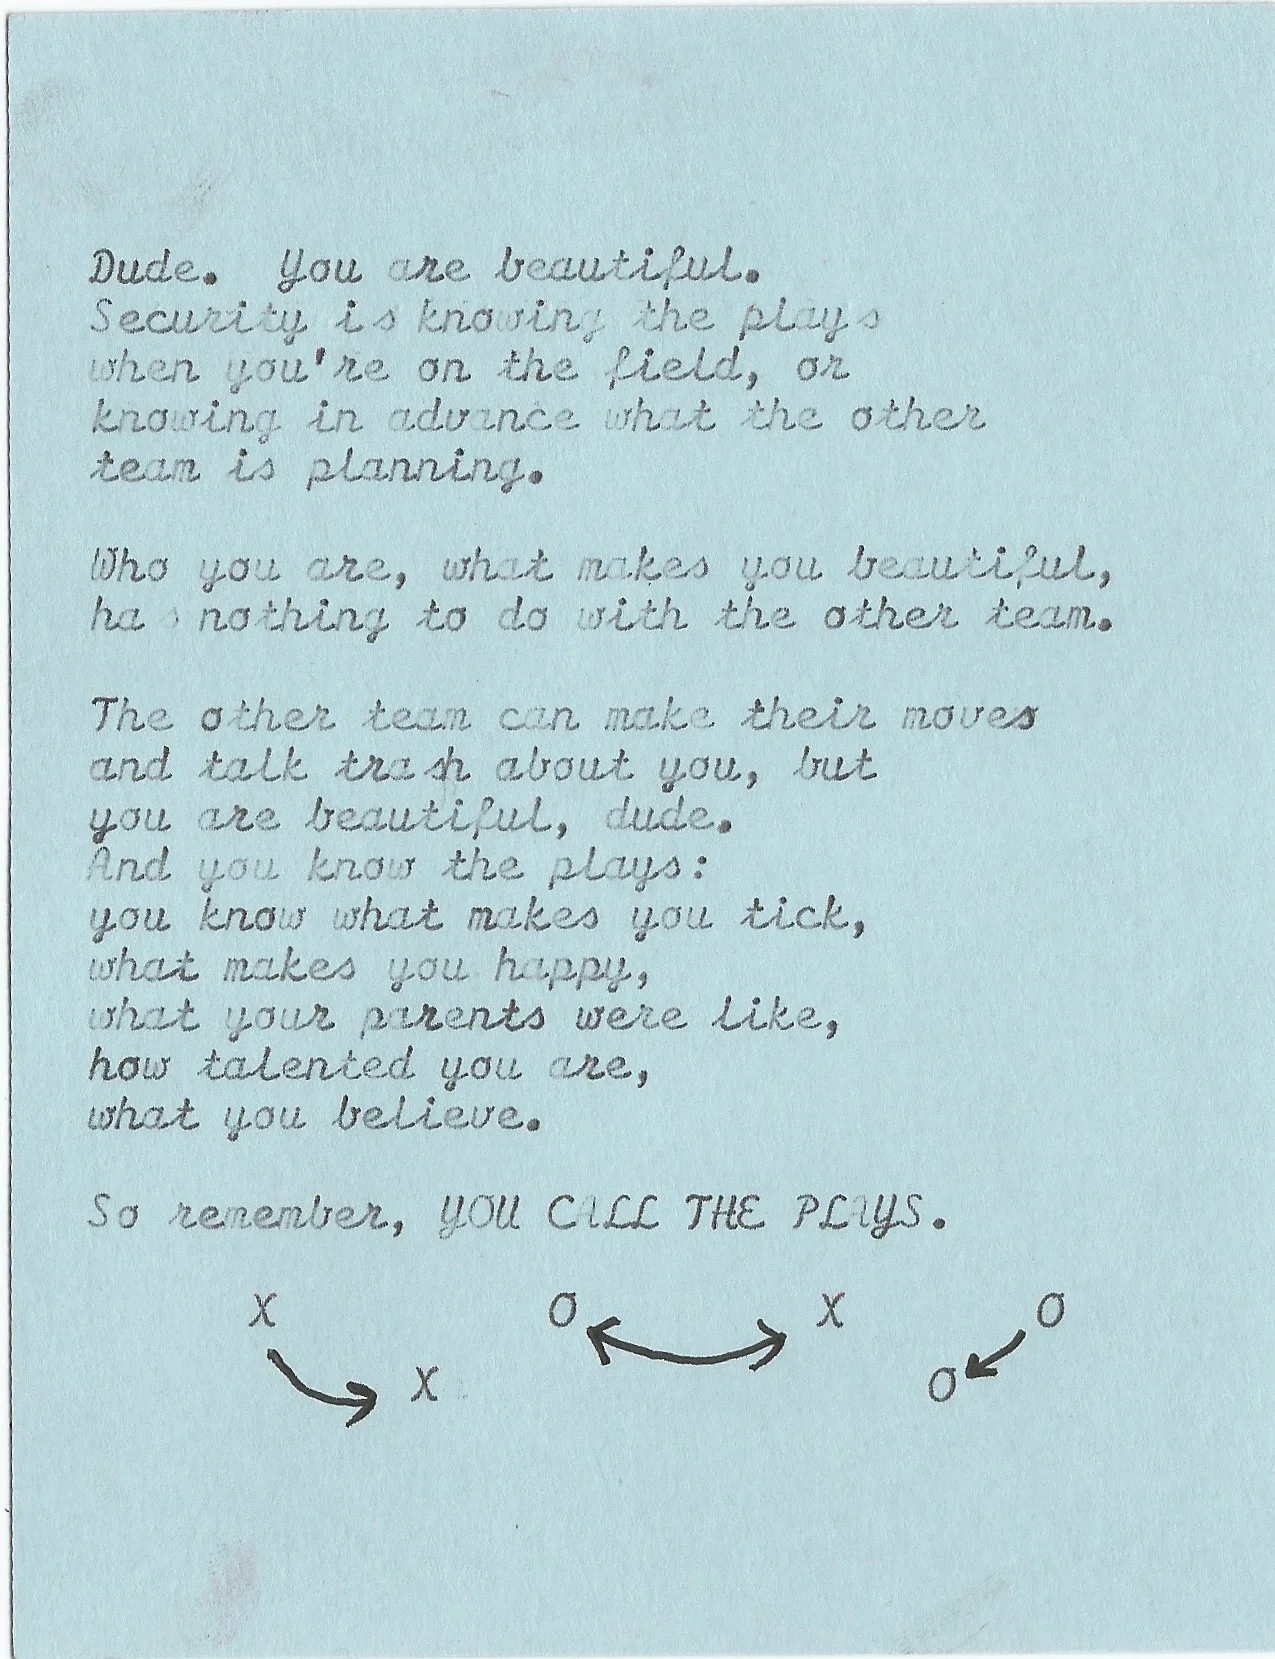 Dude.  You are beautiful.
Security is knowing the plays
when you're on the field, or
knowing in advance what the other
team is planning.

Who you are, what makes you beautiful,
has nothing to do with the other team.

The other team can make their moves
and talk trash about you, but
you are beautiful, dude.
And you know the plays:
you know what makes you tick,
what makes you happy,
what your parents were like,
how talented you are,
what you believe.

So remember, YOU CALL THE PLAYS.
X O X O
X O